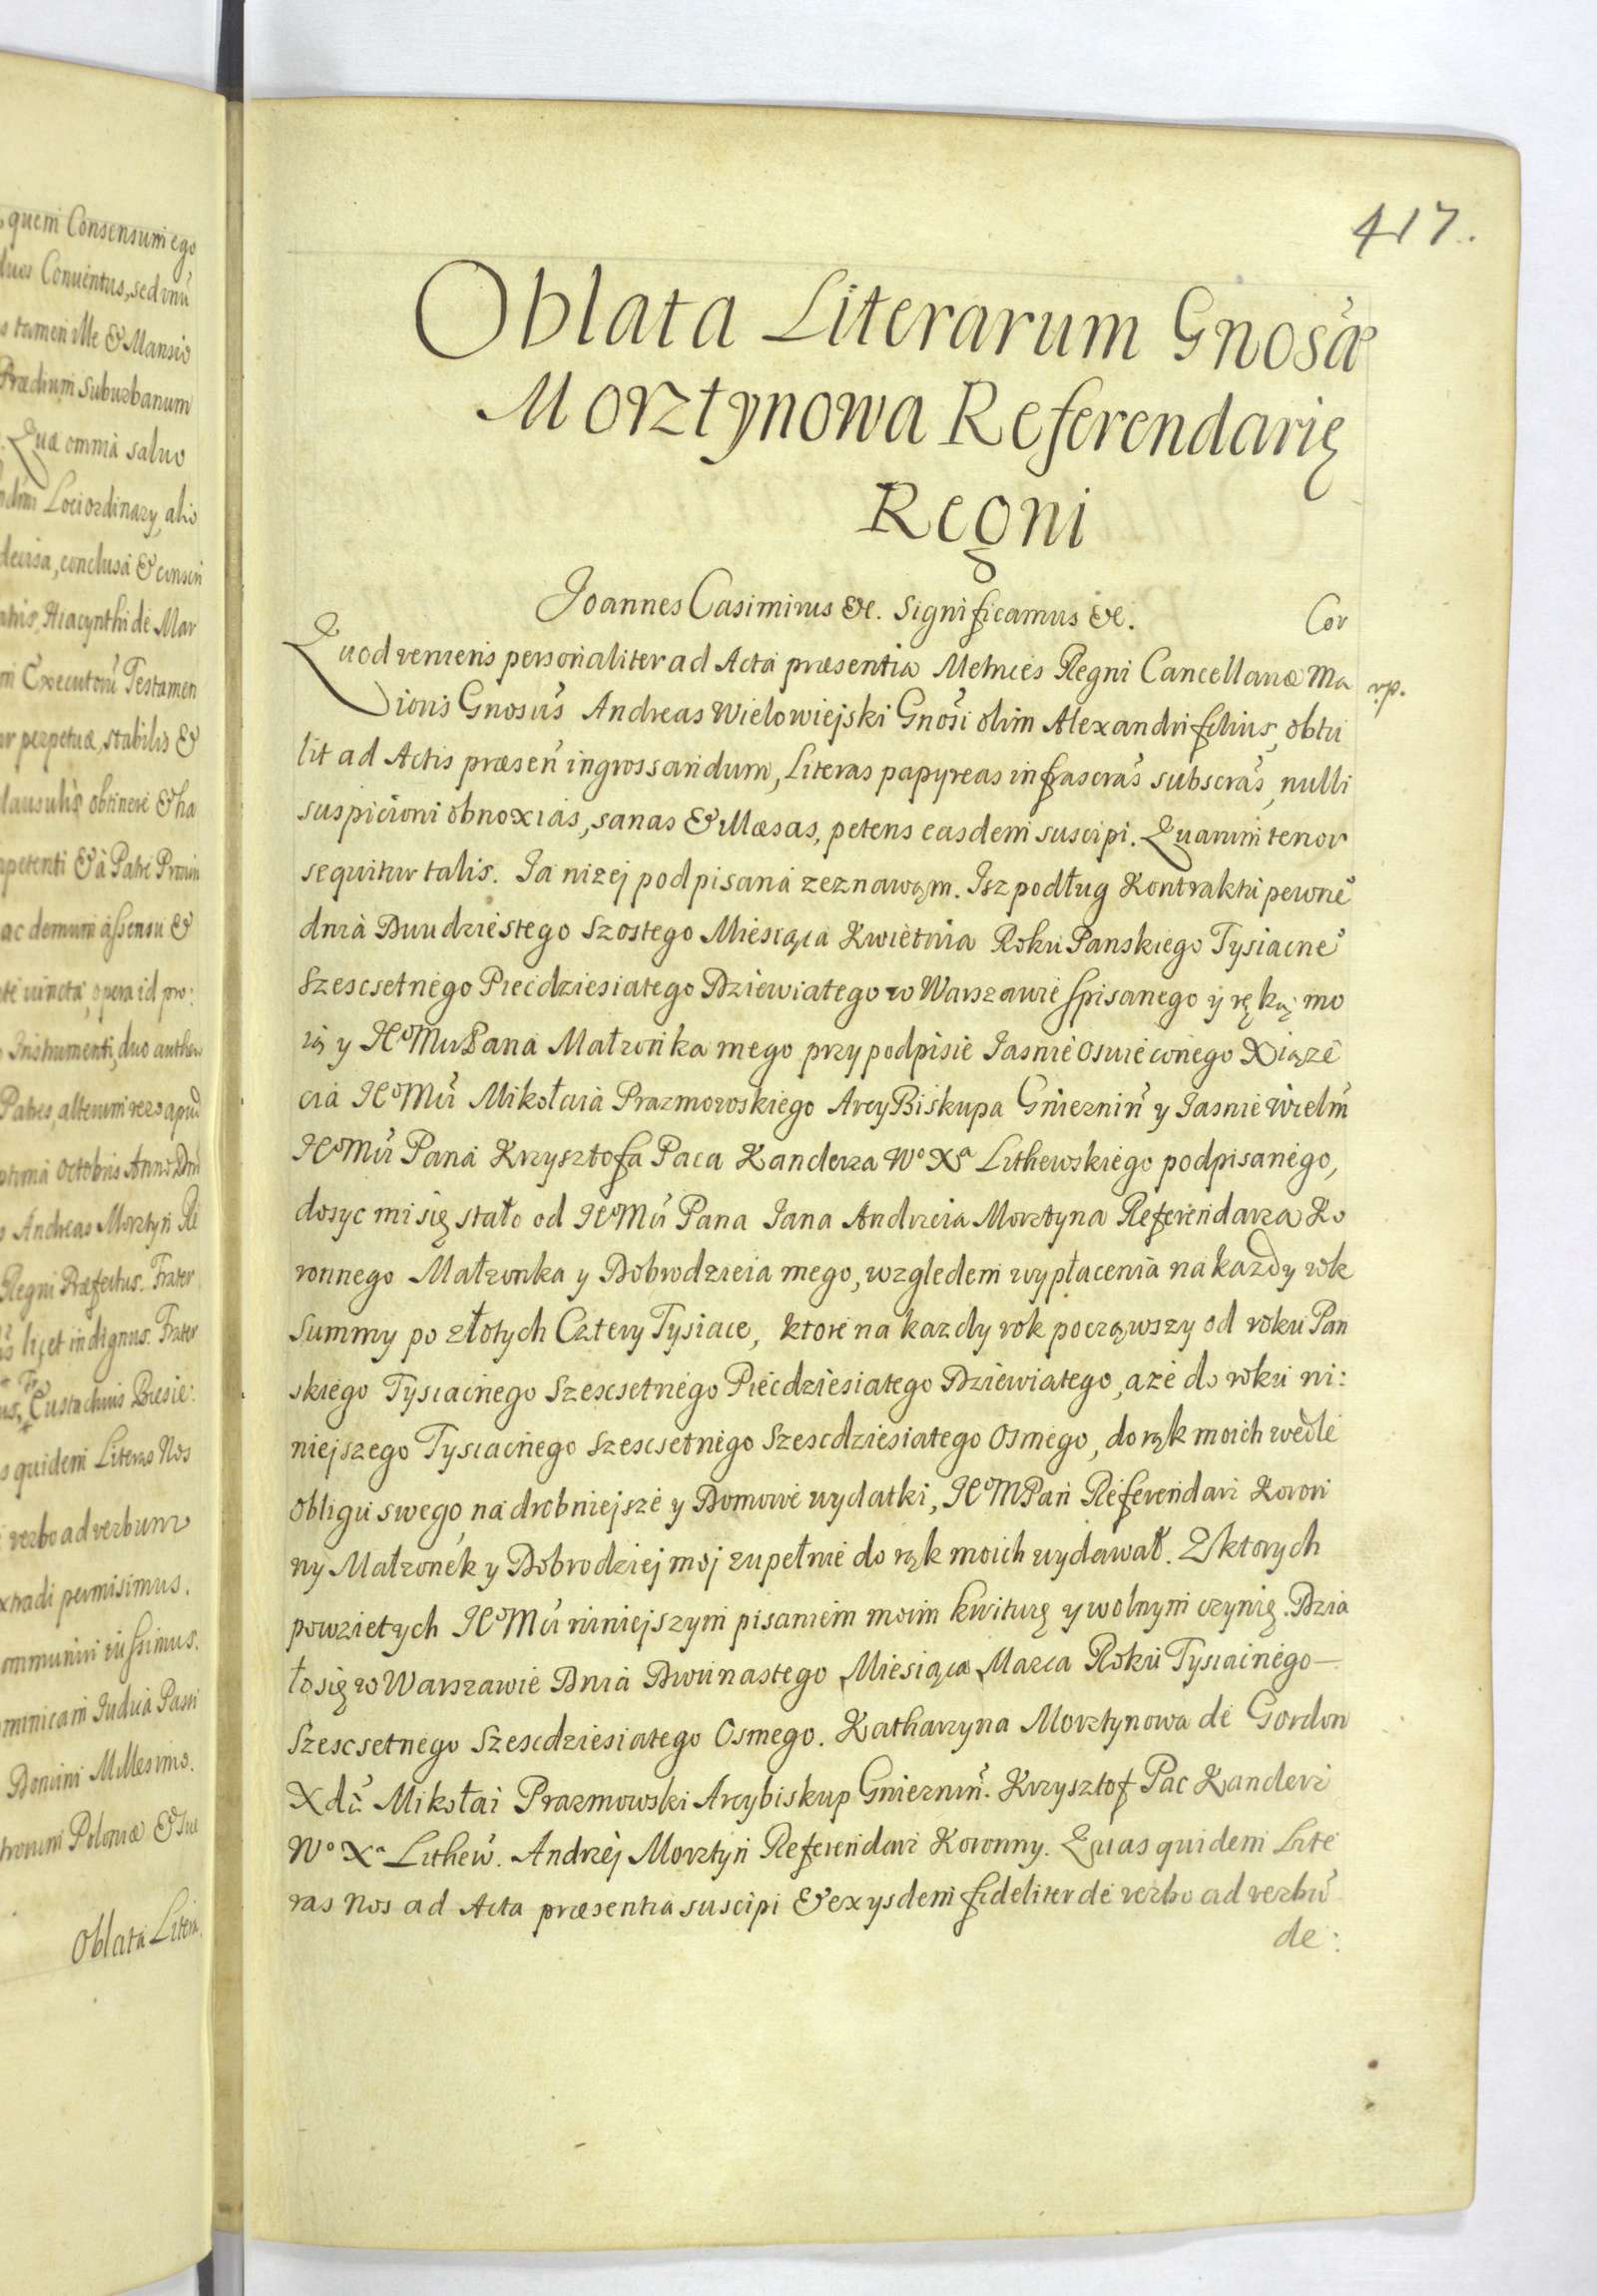 quem Consensum ego
duos Conventus, sed vnu
tamen ille & Mansio
Prædium Suburbanum
Quæ omnia salvo
Loci ordinary, alio
decisa, conclusa & consen
Hiacynthi de Mar
Executoru Testamen
perpetuæ, stabilis &
clausulis obtinere & ha
petenti & à Patre Provin
ac demum assensu &
opera id pro:
Instrumenti, duo authen
Patres, alterum vero apud
Octobris Anno Dni
Andreas Morztyn Re
Regni Præfectus. Frater
licet indignus. Frater
Fr
Eustachius
quidem Literas Nos
verbo ad verbum
xtradi permisimus.
ommuniri iussimus.
minicam Iudica Passi
Domini Millesimo.
Poloniæ & Sue
Oblata Litera.
417.
Oblata Literarum Gnosæ
Morztynowa Referendarię
Regni
Joannes Casimirus &c. Significamus &c.
Cor
Quod veniens personaliter ad Acta præsentia Metrices Regni Cancellariæ Ma
rp.
ioris Gnosus Andreas Wielowiejski Gnosi olim Alexandri filius, obtu
lit ad Actis præsen ingrossandum, Literas papyreas infrascras subscras, nulli
suspicioni obnoxias, sanas & illæsas, petens easdem suscipi. Quarum tenor
sequitur talis. Ja nizej podpisana zeznawąm. Isz podług Kontraktu pewne°
dnia Dwudziestego Szostego Miesiąca Kwietnia Roku Panskiego Tysiacne°
Szescsetnego Piećdziesiatego Dziewiatego w Warszawie spisanego ÿ ręką mo
ią y Je°Mu Pana Małzonka mego przy podpisie Jasnie Oswieconego Xiąze
cia Je°Mu Mikołaia Prazmowskiego ArcyBiskupa Gniezniń y Jasnie Wielm
Je°Mu Pana Krzysztofa Paca Kanclerza W° Xa Lithewskiego podpisanego,
dosyc mi się stało od Je°Mu Pana Jana Andrzeia Morztyna Referendarza Ko
ronnego Małzonka y Dobrodzieia mego, względem wypłacenia na kazdy rok
Summy po złotych Cztery Tysiace, ktore na kazdy rok począwszy od roku Pan
skiego Tysiacnego Szescsetnego Piećdziesiatego Dziewiatego, aze do roku ni:
niejszego Tysiacnego Szescsetnego Szescdziesiatego Osmego, do rąk moich wedle
obligu swego na drobniejsze y Domowe wydatki, Je°MPan Referendarz Koron
ny Małzonek y Dobrodziej moj zupełnie do rąk moich wydawał. Z ktorych
powzietych Je°Mu niniejszym pisaniem moim kwituię y wolnym czynię. Dzia
ło się w Warszawie Dnia Dwunastego Miesiąca Marca Roku Tysiacnego—
Szescsetnego Szescdziesiatego Osmego. Katharzyna Morztynowa de Gordon
Xdz Mikołai Prazmowski Arcybiskup Gniezniń. Krzysztof Pac Kanclerz
W° Xa Lithew. Andrzej Morztyn Referendarz Koronny. Quas quidem Lite
ras Nos ad Acta præsentia suscipi & ex ysdem fideliter de verbo ad verbu
de: